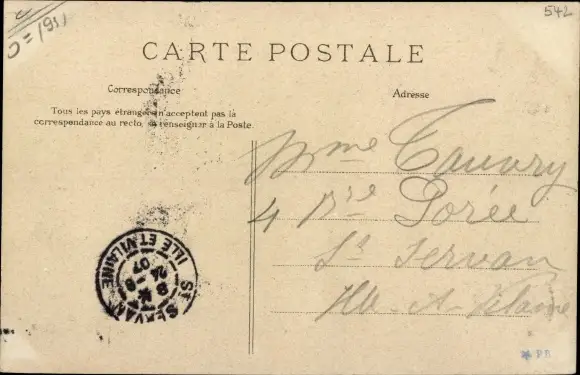 542
CARTE POSTALE
Correspondance
Adresse
Tous les pays étrangers n'acceptent pas la
correspondance au recto, se renseigner à la Poste.
Mme Tauvry
4 Porée
St Servan
Ille-et-Vilaine
ST SERVAN
ILLE ET VILAINE
24
07